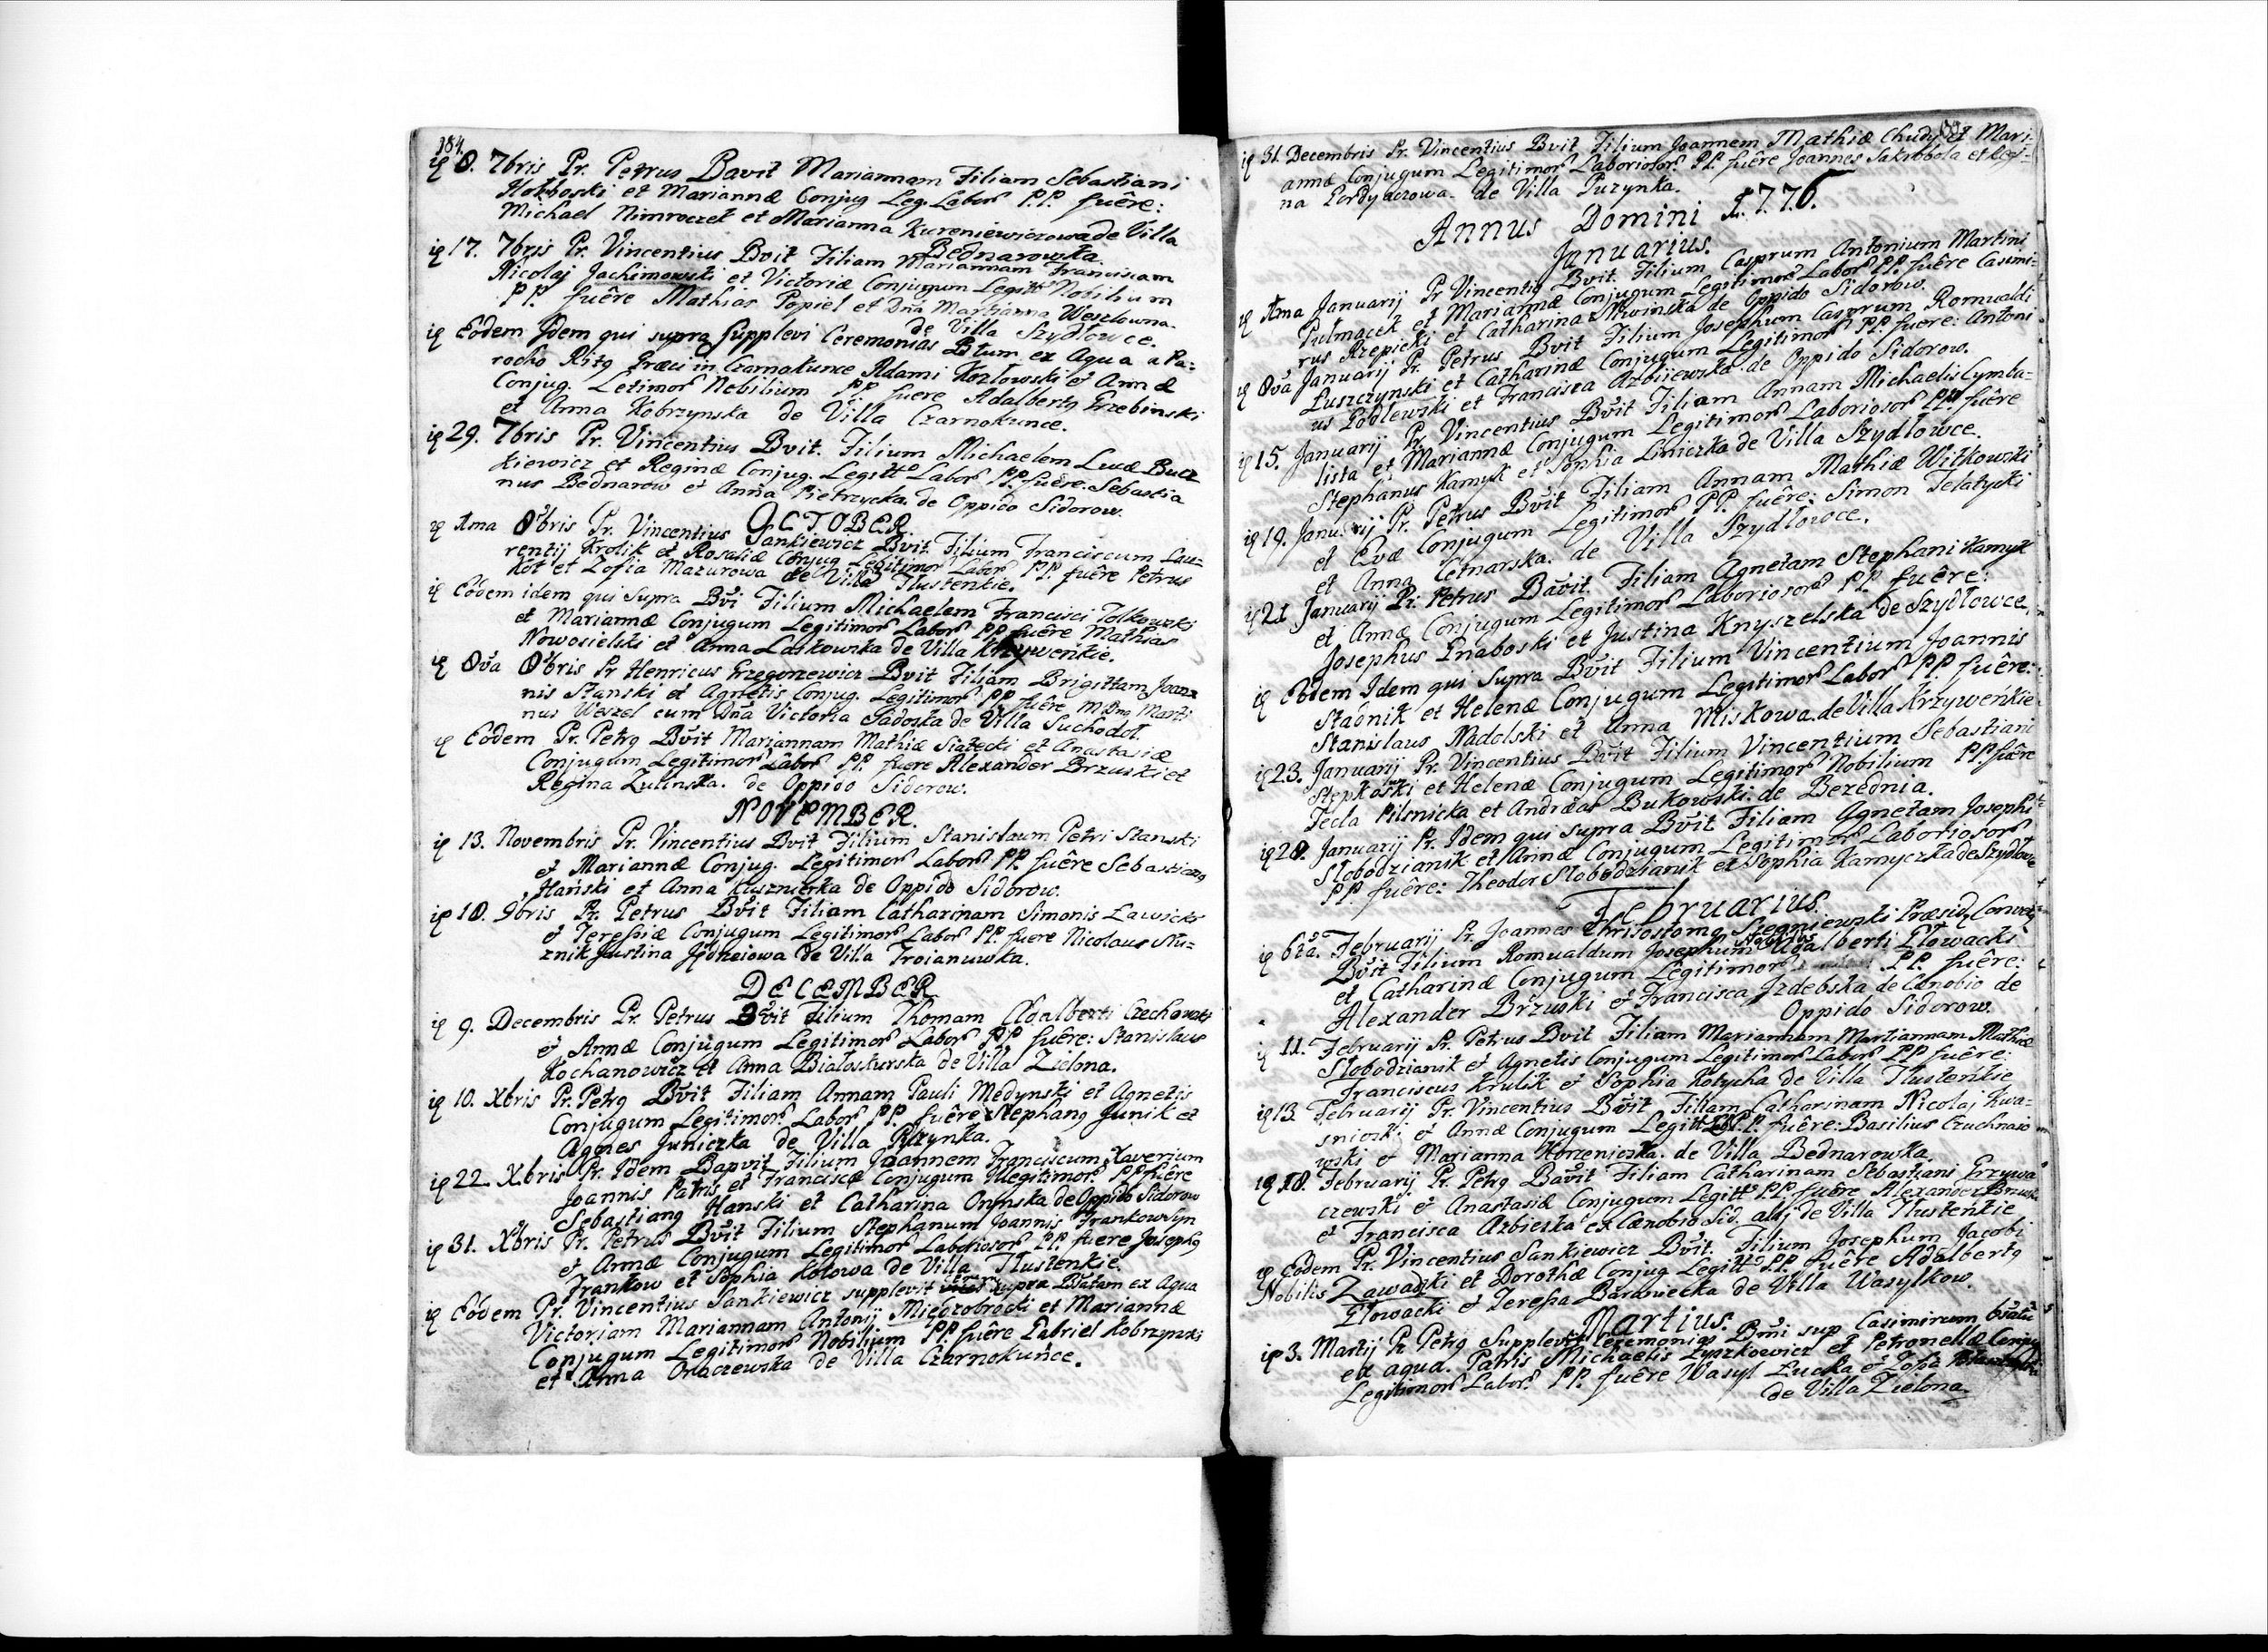 184.
ig 8. 7bris Pr. Petrus Bavit Mariannam Filiam Sebastiani
et Mariannæ Conjug Leg. Labor PP. fuêre:
Michael Nimroczek et Marianna Kureniewiczowa de Villa
Bednarowka.
ig 17. 7bris Pr. Vincentius Bvit Filiam Mariannam Franciscam
Nicolaj Jachimowski et Victoriæ Conjugum Legitt Nobilium
PP. fuêre Mathias Popiel et Dña Marianna Weszlowna.
de Villa Szydłowce.
ig Eodem Idem qui supra Supplevi Ceremonias Btum ex Aqua a Pa-
rocho Ritg Græci in Czarnokunce Adami Kozłowski et Annæ
Conjug. Letimor Nobilium PP fuere Adalbertg Grzebinski
et Anna Kobrzynska de Villa Czarnokunce.
ig 29. 7bris Pr. Vincentius Bvit. Filium Michaelem Lucæ Bucz
kiewicz et Reginæ Conjug. Legitt Labor PP. fuêre. Sebastia
nus Bednarow et Anna Pietrzycka de Oppido Sidorow.
OCTOBER
ig 1ma 8bris Pr. Vincentius Sankiewicz Bvit Filium Franciscum Lau-
rentij Krolik et Rosaliæ Conjug Legitimor Labor PP. fuêre Petrus
Kot et Zofia Mazurowa de Villa Tlustenkie.
ig Eodem idem qui Supra Bvi Filium Michaelem Francisci Tolkowski
et Mariannæ Conjugum Legitimor Labor PP fuêre Mathias
Nowosielski et Anna Laskowska de Villa Krzywenkie.
ig 8va 8bris Pr Henricus Grzegorzewicz Bvit Filiam Brigittam Joan-
nis Stanski et Agnetis Conjug. Legitimor PP fuêre M Dns Marti
nus Weszel cum Dña Victoria Sadoska de Villa Suchodol.
ig Eodem Pr. Petrg Bvit Mariannam Mathiæ Siatecki et Anastasiæ
Conjugum Legitimor Labor PP. fuere Alexander Brzuski et
Regina Zulinska. de Oppido Sidorow.
NOVEMBER.
ig 13. Novembris Pr. Vincentius Bvit Filium Stanislaum Petri Stanski
et Mariannæ Conjug. Legitimor Labor PP. fuêre Sebastiang
Hański et Anna Kusznierka de Oppido Sidorow.
ig 18. 9bris Pr. Petrus Bvit Filiam Catharinam Simonis Ławicki
et Teressiæ Conjugum Legitimor Labor PP. fuere Nicolaus Stu-
znik Justina Jędrzeiowa de Villa Troianuwka.
DECEMBER
ig 9. Decembris Pr. Petrus Bvit Filium Thomam Adalberti Czechowski
et Annæ Conjugum Legitimor Labor PP fuêre: Stanislaus
Kochanowicz et Anna Białoskurska de Villa Zielona.
ig 10. Xbris Pr. Petrg Bvit Filiam Annam Pauli Medynski et Agnetis
Conjugum Legitimor Labor PP. fuêre Stephang Junik et
Agnes Juniczka de Villa Puzynka.
ig 22. Xbris Pr. Idem Bapvit Filium Joannem Franciscum Xaverium
Joannis Patris et Franciscæ Conjugum Illegitimor PP fuêre
Sebastiang Hanski et Catharina Orynska de Oppido Sidorow
ig 31. Xbris Pr. Petrus Bvit Filium Stephanum Joannis Frankow Syn
et Annæ Conjugum Legitimor Laboriosor PP. fuere Josephg
Frankow et Sophia Kotowa de Villa Tlustenkie.
ig Eodem Pr. Vincentius Sankiewicz supplevit supra Bvatam ex Aqua
Victoriam Mariannam Antonij Międzobrocki et Mariannæ
Conjugum Legitimor Nobilium PP. fuêre Gabriel Kobrzynski
et Anna Oraczewska de Villa Czarnokunce.
ig 31. Decembris Pr. Vincentius Bvit Filium Joannem Mathiæ Chudy et Mari-
annæ Conjugum Legitimor Laboriosor PP. fuêre Joannes Sakrobbola et Regi-
na Perdyaczowa. de Villa Puzynka.
Annus Domini 1.7.7.6.
Januarius.
ig 1ma Januarij Pr Vincentig Bvit Filium Casprum Antonium Martini
Putnacek et Mariannæ Conjugum Legitimor Labor PP. fuêre Casimi-
rus Rzepicki et Catharina Niwinska de Oppido Sidorow.
ig 8va Januarij Pr. Petrus Bvit Filium Josephum Casprum Romualdi
Łuszczynski et Catharinæ Conjugum Legitimor PP. fuere: Antoni
us Podlewski et Francisca Azbijewska de Oppido Sidorow.
ig 15. Januarij Pr. Vincentius Bvit Filiam Annam Michaelis Cymba-
lista et Mariannæ Conjugum Legitimor Laboriosor PP. fuêre
Stephanus Kamyk et Sophia Liniczka de Villa Szydlowce.
ig 19. Januarij Pr. Petrus Bvit Filiam Annam Mathiæ Witkowski
et Evæ Conjugum Legitimor PP. fuêre: Simon Telatycki
et Anna Cetnarska. de Villa Szydłowce.
ig 21 Januarij Pr. Petrus Bavit Filiam Agnetam Stephani Kamyk
et Annæ Conjugum Legitimor Laboriosor PP. fuêre:
Josephus Gnaboski et Justina Knyszelska de Szydłowce
ig Eodem Idem qui Supra Bvit Filium Vincentium Joannis
Stadnik et Helenæ Conjugum Legitimor Labor PP. fuêre:
Stanislaus Nadolski et Anna Miskowa. de Villa Krzyweńkie
ig 23. Januarij Pr. Vincentius Bvit Filium Vincentium Sebastiani
Stepkowski et Helenæ Conjugum Legitimor Nobilium PP. fuêre
Tecla Pilsnicka et Andræas Bukowski de Berednia.
ig 28. Januarij Pr. Idem qui Supra Bvit Filiam Agnetam Josephi
Slobodzianik et Annæ Conjugum Legitimor Laboriosor
PP. fuêre: Theodor Slobodzianik et Sophia Kamyczka de Szydłowce
Februarius.
ig 6ta. Februarij Pr. Joannes Chrisostomg Szegniewski Præsidg Convetg
Bvit Filium Romualdum Josephum Nobilius Adalberti Głowacki
et Catharinæ Conjugum Legitimor PP. fuêre:
Alexander Brzuski et Francisca Jzdebska de Cænobio de
Oppido Sidorow.
ig 11. Februarij Pr. Petrus Bvit Filiam Mariannam Martiannam Mathiæ
Slobodzianik et Agnetis Conjugum Legitimor Labor PP fuêre:
Franciscus Krulik et Sophia Kotycha de Villa Tlusteńkie
ig 13 Februarij Pr. Vincentius Bvit Filiam Catharinam Nicolaj Kwa-
snioski et Annæ Conjugum Legitt PP. fuêre: Basilius Czuchnaso
wski et Marianna Korzenioska. de Villa Bednarowka.
ig 18. Februarij Pr. Petrg Bavit Filiam Catharinam Sebastiani Grzywa
czewski et Anastasiæ Conjugum Legitt PP. fuêre Alexander Brzuski
et Francisca Azbieska ex Cænobio Sid. alij de Villa Tlusteńkie
ig Eodem Pr. Vincentius Sankiewicz Bvit. Filium Josephum Jacobi
Nobilis Zawadzki et Dorothæ Conjug Legitt PP. fuêre Adalbertg
Głowacki et Teressa Baraniecka de Villa Wasylkow.
Martius.
ig 3. Martij Pr Petrg Supplevit Ceremonias Bmi sup Casimirum bvatu
ex aqua. Patris Michaelis Łyszkoewicz et Petronellæ Conjug
Legitimor Labor. PP. fuêre Wasyl Łucka et Zofia
de Villa Zielona.